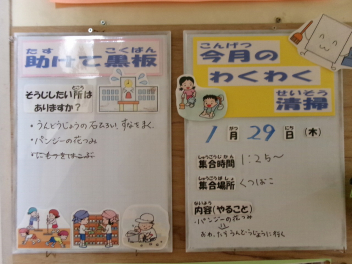 たす こくばん
助けて黒板
そうじしたい所は
ありますか?
・うんどうじょうの石ひろい、すなをまく。
・パンジーの花つみ
こんげつ
今月の
わくわく
せいそう
清掃
1月 29日(木)
しゅうごうじかん
集合時間 1:25～
しゅうごうばしょ
集合場所 くつばこ
ないよう
内容(やること)
・パンジーの花つみ